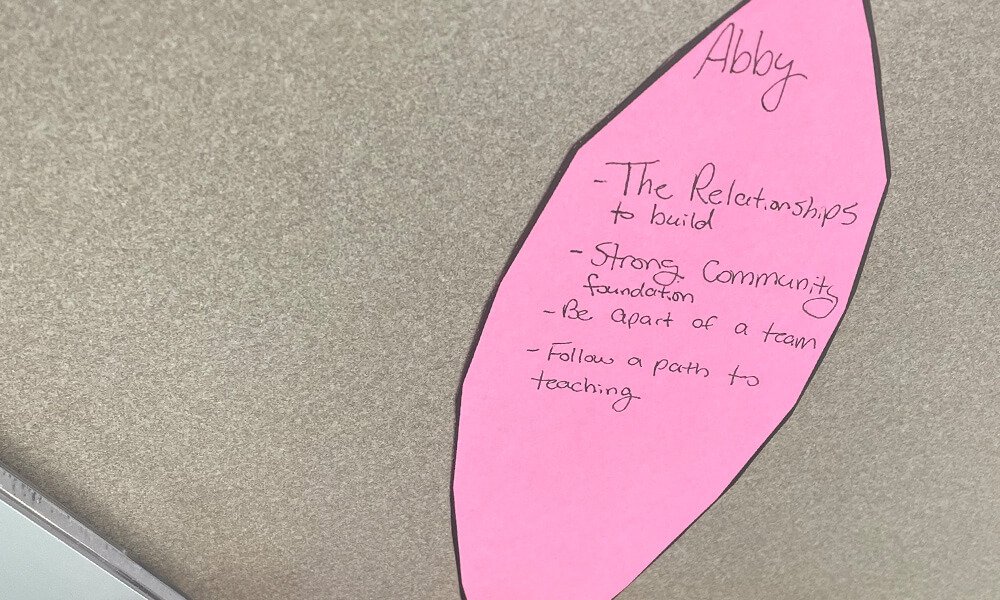 Abby
- The Relationships
to build
- Strong Community
foundation
- Be apart of a team
- Follow a path to
teaching